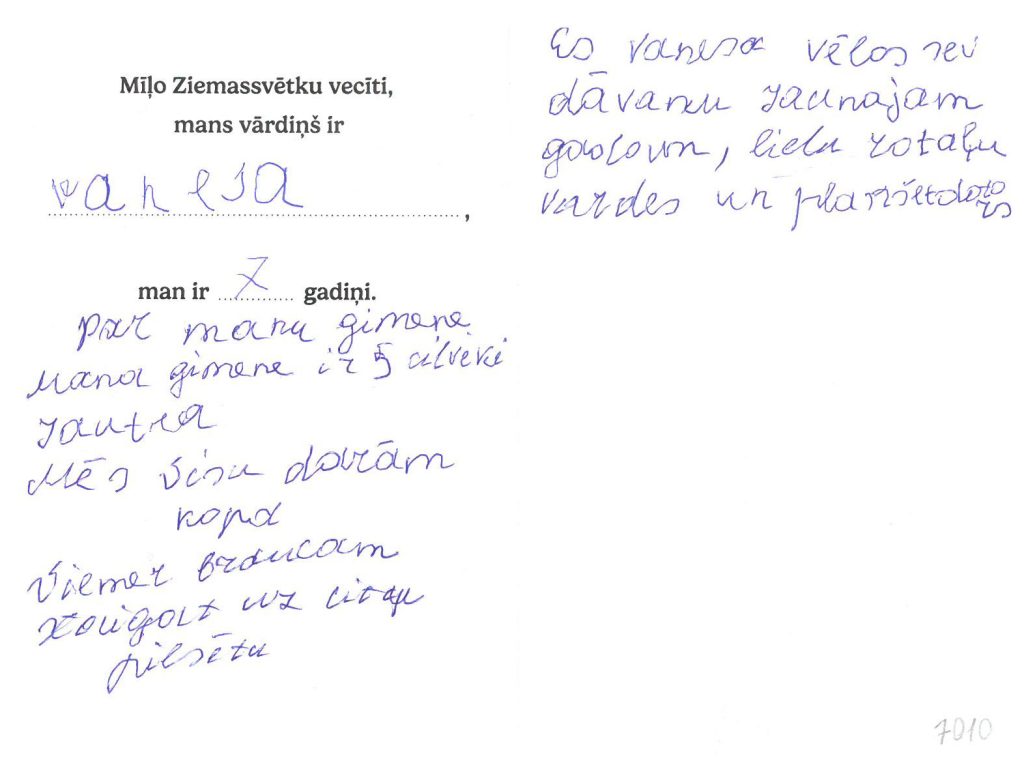 Mīļo Ziemassvētku vecīti,
mans vārdiņš ir
vanesa,
man ir 7 gadiņi.
par manu ģimene
Mana ģimene ir 5 cilvēki
Jautra
Mēs visu darām
kopā
Viemēr braucam
staigāt uz citaju
pilsētu
Es vanesa vēlos sev
dāvanu Jaunajam
gadam, lielu rotaļu
vardes un planšetdators
7010